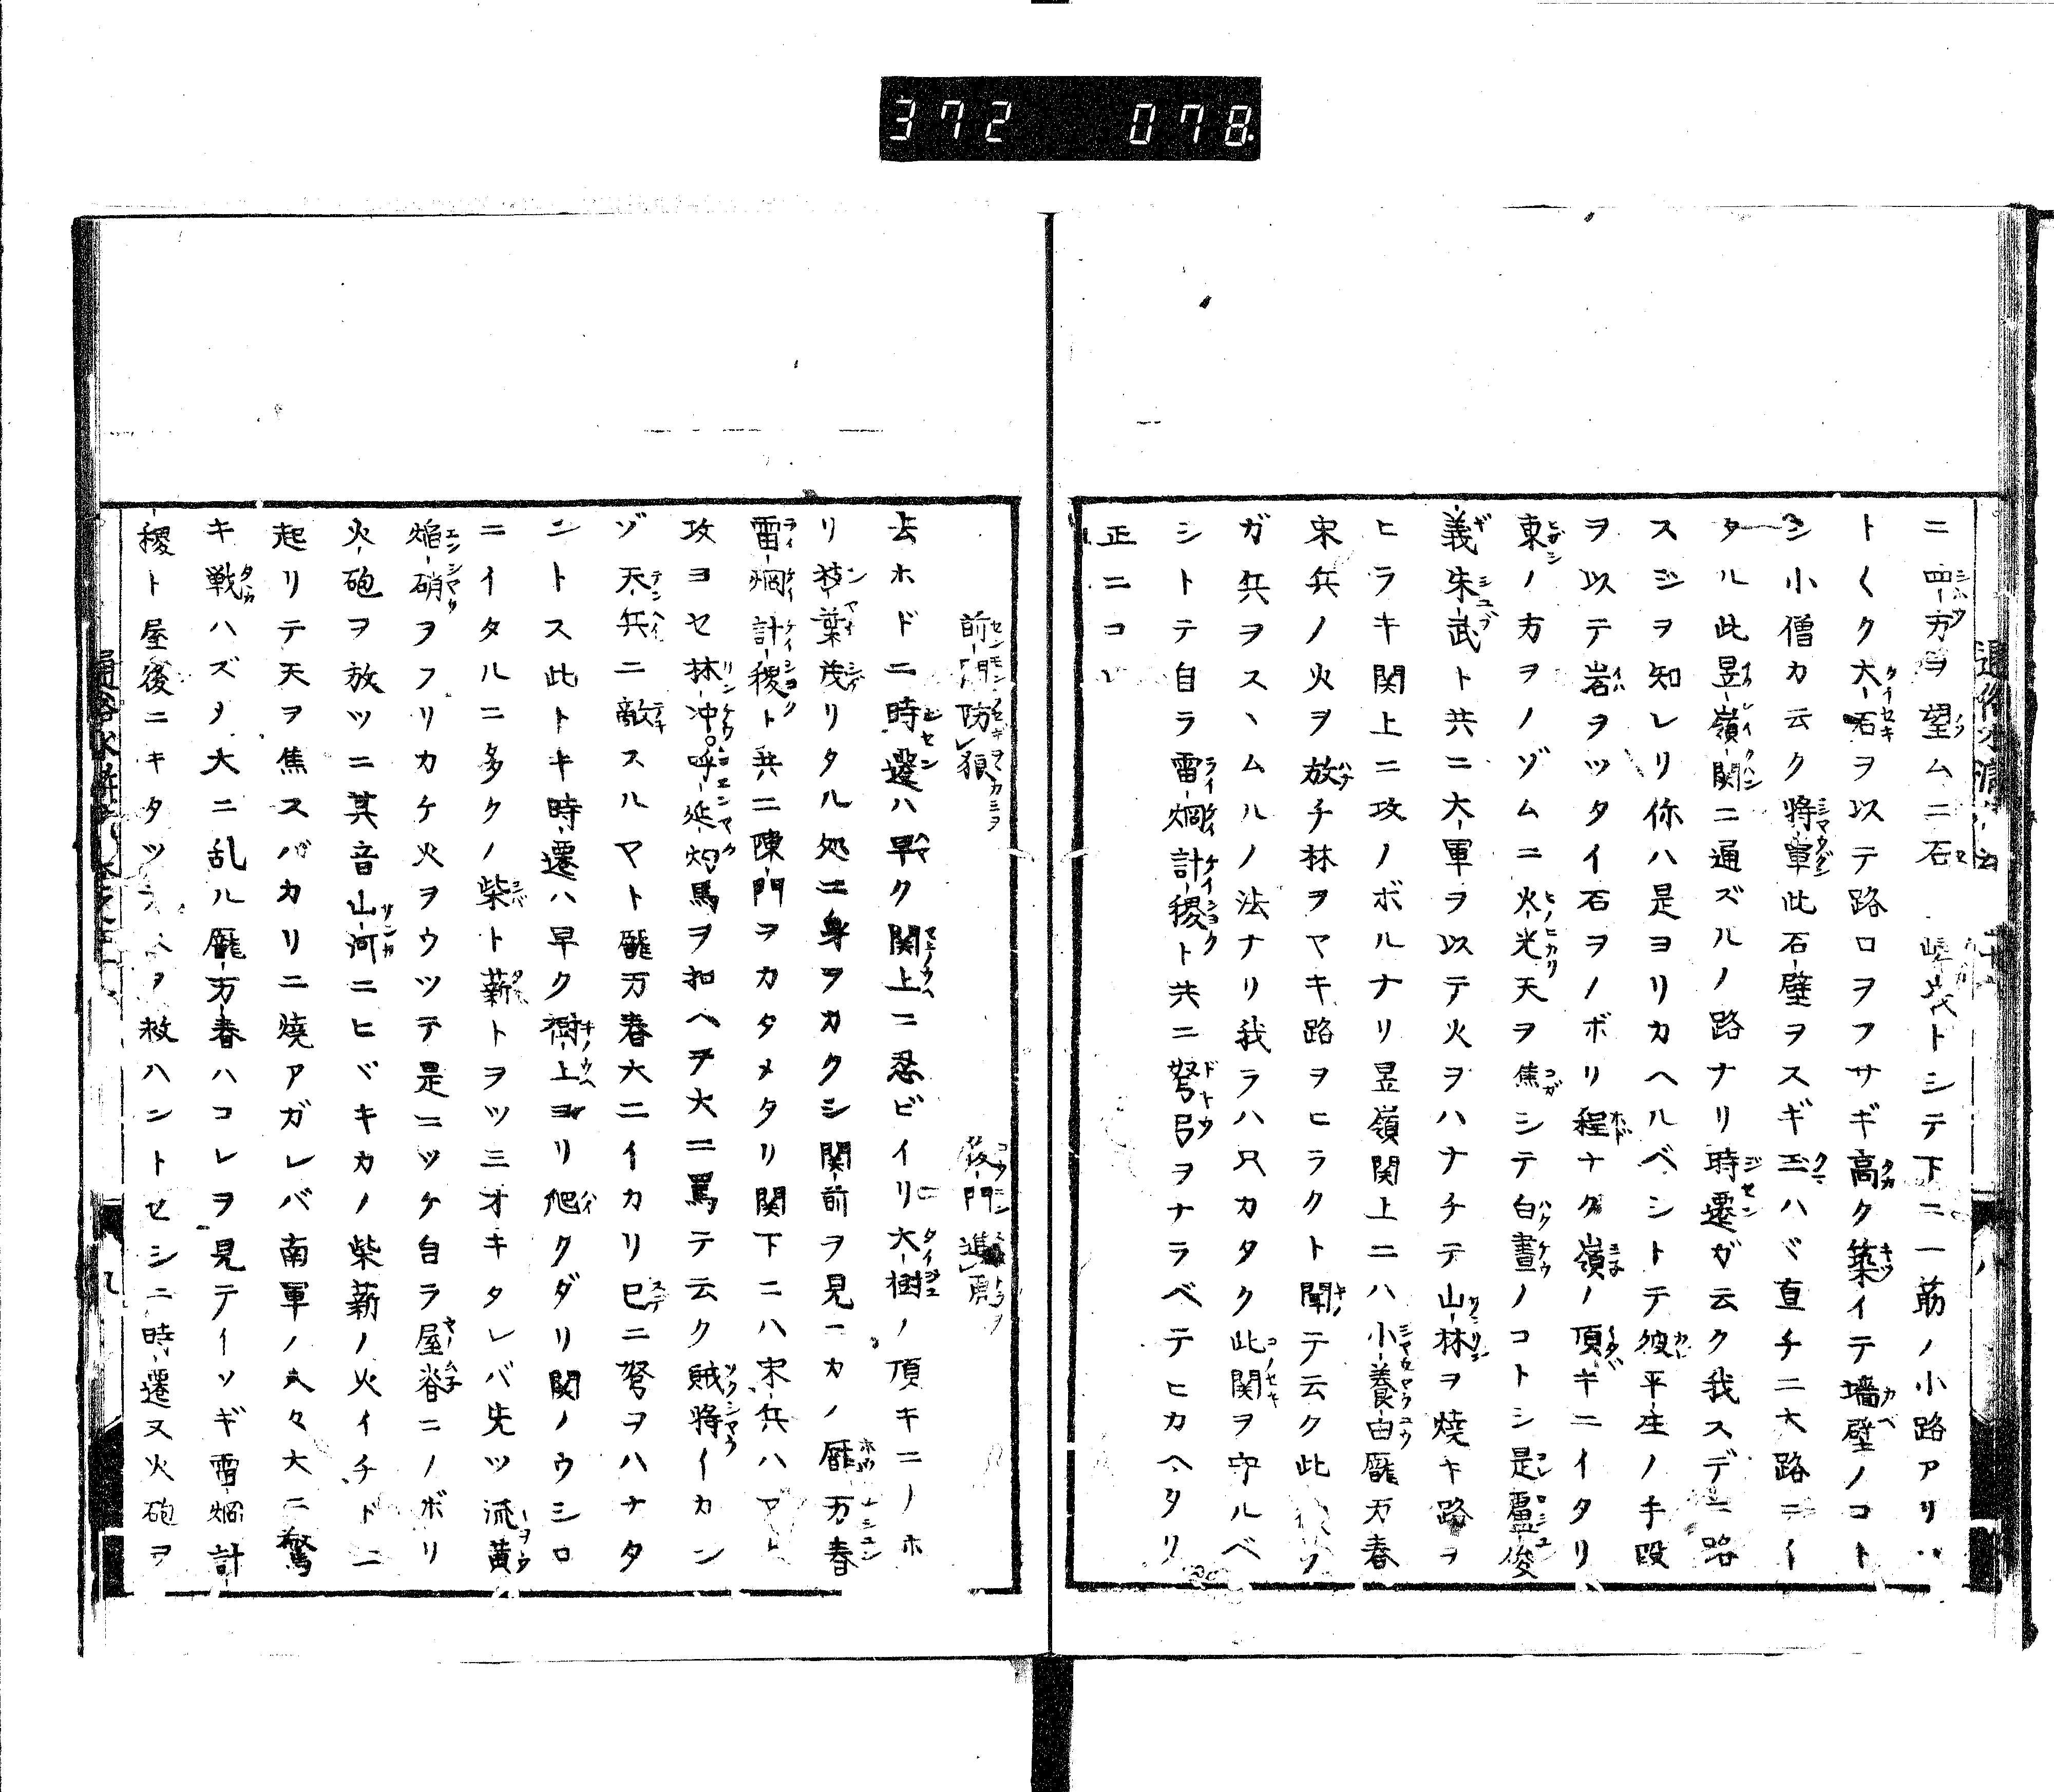 372 078
ニ四方ヲ望ムニ石 嵯峩トシテ下ニ一筋ノ小路アリ
ト〱ク大石ヲ以テ路ロヲフサギ高ク築イテ墻壁ノコト
シ小僧カ云ク將軍此石壁ヲスギ玉ハヾ直チニ大路ニイ
タル此昱嶺関ニ通ズルノ路ナリ時遷ガ云ク我スデニ路
スジヲ知レリ你ハ是ヨリカヘルベシトテ彼平生ノ手段
ヲ以テ岩ヲツタイ石ヲノボリ程ナク嶺ノ頂キニイタリ
東ノ方ヲノゾムニ火光天ヲ焦シテ白晝ノコトシ是盧俊
義朱武ト共ニ大軍ヲ以テ火ヲハナチテ山林ヲ燒キ路ヲ
ヒラキ関上ニ攻ノボルナリ昱嶺関上ニハ小養由龐万春
宋兵ノ火ヲ放チ林ヲヤキ路ヲヒラクト聞テ云ク此
ガ兵ヲスヽムルノ法ナリ我ラハ只カタク此関ヲ守ルベ
シトテ自ラ雷炯計稷ト共ニ弩弓ヲナラベテヒカヘタリ
正ニコレ
前門防狼 後門進
去ホドニ時遷ハ早ク関上ニ忍ビイリ大樹ノ頂キニノホ
リ枝葉茂リタル処ニ身ヲカクシ関前ヲ見ニカノ龐万春
雷炯計稷ト共ニ陳門ヲカタメタリ関下ニハ宋兵ハヤ
攻ヨセ林冲呼延灼馬ヲ扣ヘテ大ニ罵テ云ク賊將イカン
ゾ天兵ニ敵スルヤト龐万春大ニイカリ已ニ弩ヲハナタ
ントス此トキ時遷ハ早ク樹上ヨリ爬クダリ関ノウシロ
ニイタルニ多クノ柴ト薪トヲツミオキタレバ先ツ流黄
焔硝ヲフリカケ火ヲウツテ是ニツケ自ラ屋脊ニノボリ
火砲ヲ放ツニ其音山河ニヒヾキカノ柴薪ノ火イチドニ
起リテ天ヲ焦スバカリニ燒アガレバ南軍ノ人々大ニ驚
キ戦ハズノ大ニ乱ル龐万春ハコレヲ見テイソギ雷炯計
稷ト屋後ニキタツテ火ヲ救ハントセシニ時遷又火砲ヲ